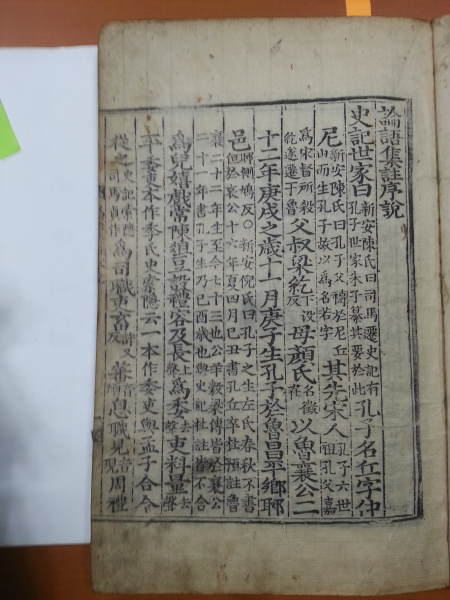 論語集註序說
史記世家曰新安陳氏曰司馬遷史記有孔子世家朱子纂其要於此孔子名丘字仲
尼新安陳氏曰孔子父禱於尼丘山而生孔子故以爲名若字其先宋人孔子六世祖孔父嘉
爲宋督所殺遂遷于魯父叔梁紇下沒反母顏氏名徵在以魯襄公二
十二年庚戌之歲十一月庚子生孔子於魯昌平鄉陬
邑側鳩反○新安倪氏曰孔子之生左氏春秋不書但於襄公十六年夏四月己丑書孔丘卒杜預註魯
襄二十二年生至今七十三也公羊穀梁傳皆於襄公二十一年書孔子生乃己酉歲也與史記杜註皆不合
爲兒嬉戲常陳俎豆設禮容及長上聲爲委去聲吏料量去聲
平委吏本作季氏史索隱云一本作委吏與孟子合今
從之史記索隱司馬貞作爲司職吏畜許又反蕃音煩息職見音現周禮